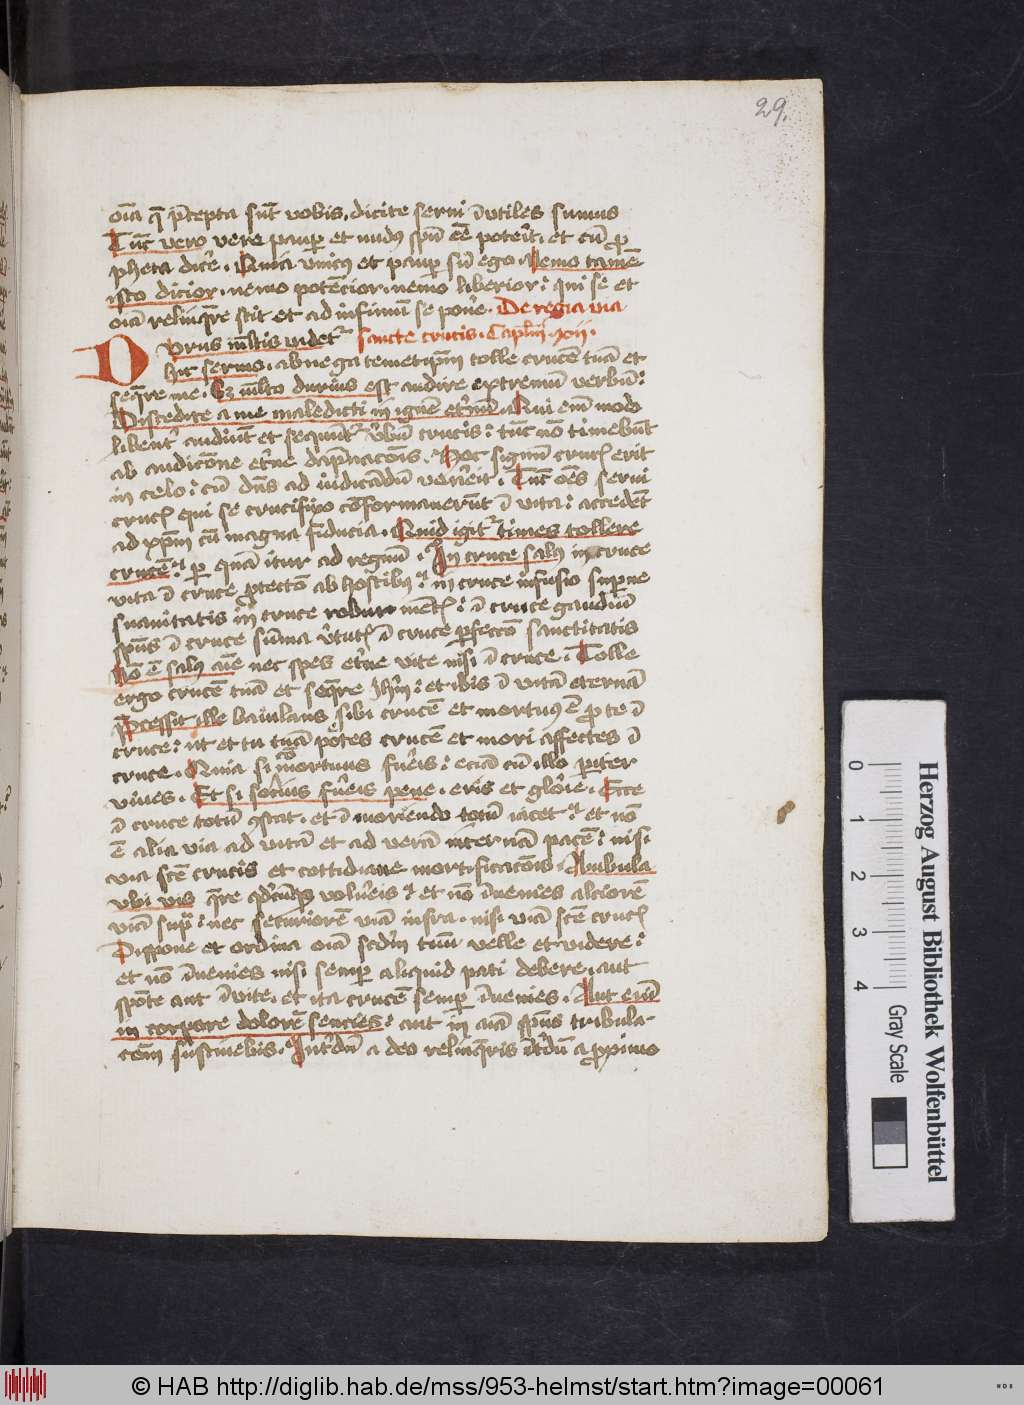 29.
oīa q̄ p̄cepta sūt vobis, dicite serui īvtiles sumus
Tūc vero vere paup̄ et nudꝰ sp̄u eē poteīt. et cū ꝓ
pheta dic̄e. Quia vnicꝰ et paup̄ sū ego. Nemo tamē
isto dicior. nemo potēcior. nemo liberior: qui se et
oīa relinq̄re scit et ad infimū se pon̄e. De regia via
sancte crucis. Cap̄lm̄ .xii.
Durus ml̄tis videt᷑
hic sermo. abnega temetip̄m tolle crucē tuā et
seq̄re me. Sꝫ ml̄to durius est audire extremū verbū:
Discedite a me maledicti in ignē et̄nū. Qui em̄ modo
libent̄ audiūt et sequūt᷑ v̄bū crucis: tūc nō timebūt
ab audicōne et̄ne dāpnacōis. Hoc signū crucꝭ erit
in celo: cū dn̄s ad iudicādū ven̄eit. Tūc oēs serui
crucꝭ qui se crucifixo cōformauerūt ī vita: accedēt
ad xp̄m cū magna fiducia. Quid igit᷑ times tollere
crucē: ꝑ quā itur ad regnū. In cruce salꝰ in cruce
vita ī cruce ꝓtectō ab hostibꝰ: in cruce infusio sup̄ne
suauitatis in cruce robur mētꝭ: ī cruce gaudiū
sp̄us ī cruce sūma v̄tutꝭ ī cruce ꝑfeccō sanctitatis
Nō ē salꝰ aīe nec spes et̄ne vite nisi ī cruce. Tolle
ergo crucē tuā et seq̄re Ihm̄: et ibis ī vitā eternā
P̄cessit ille baiulans sibi crucē et mortuꝰ ē ꝓ te ī
cruce: ut et tu tuā portes crucē et mori affectes ī
cruce. Quia si cōmortuus fūeis: eciā cū illo pariter
viues. Et si socius fūeis pene. eris et glōie. Ecce
ī cruce totū ꝯstat. et ī moriendo totū iacet: et nō
ē alia via ad vitā et ad verā internā pacē: nisi
via scē crucis et cottidiane mortificacōis. Ambula
vbi vis q̄re qd̄cūqꝫ volūeis: et nō īuenies alciorē
viā sup̄: nec securiorē viā infra. nisi viā scē crucꝭ
Dispone et ordina oīa scd̄m tuū velle et videre:
et nō īuenies nisi semp̄ aliquid pati debere. aut
spōte aut īvite. et ita crucē semp̄ īuenies. Aut eim̄
in corpore dolorē sencies: aut in aīa sp̄us tribula-
cōem sustinebis. Int̄dū a deo relinq̄ris īt̄dū a ꝓximo
0
1
2
3
4
Gray Scale
Herzog August Bibliothek Wolfenbüttel
© HAB http://diglib.hab.de/mss/953-helmst/start.htm?image=00061